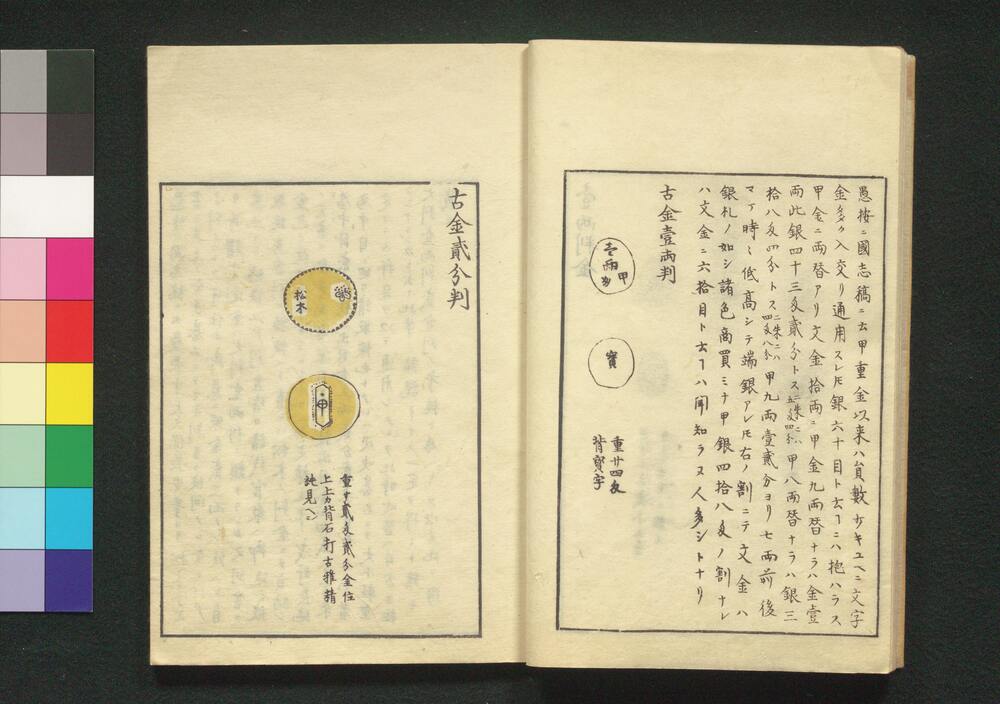 愚按ニ國志稿ニ云甲重金以来ハ員數サキユヘニ文字
金多ク入交リ通用スレ𪜈銀六十目ト云ヿニハ抱ハラス
甲金ニ両替アリ文金拾両ニ甲金九両替ナラハ金壹
両此銀四十三匁貳分トス二朱ニハ五匁四分甲八両替ナラハ銀三
拾八匁四分トス二朱ニハ四匁八分甲九両壹貳分ヨリ七両前後
マテ時〻低高シテ端銀アレ𪜈右ノ割ニテ文金ハ
銀札ノ如シ諸色商買ミナ甲銀四拾八匁ノ割ナレ
ハ文金ニ六拾目ト云ヿハ聞知ラヌ人多シトナリ
古金壹両判
甲
壱両判
寳
重廿四匁
背寳字
古金貳分判
松木
甲
重サ貳匁貳分金位
上上方背石打古雅精
純見ヘ